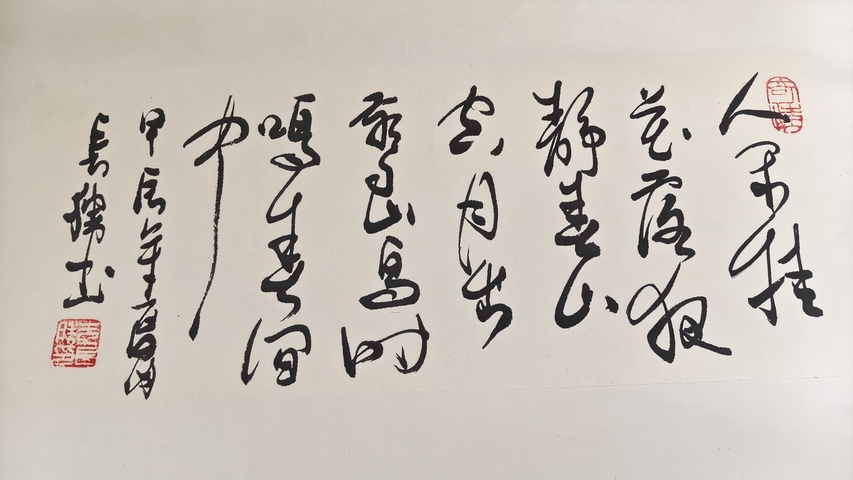 人闲桂
花落夜
静春山
空月出
惊山鸟时
鸣春涧
中
甲辰年
书